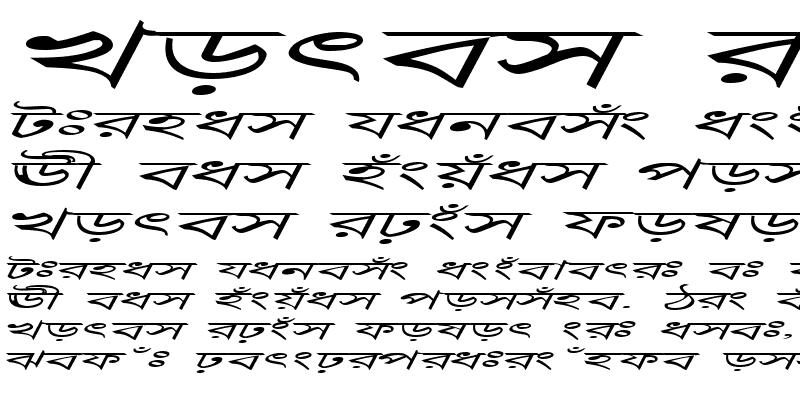 খড়ৎবস
টঃরহধস যধনবসঁং
ঊী বধস হঁংয়ঁধস
খড়ৎবস রঢ়ংঁস
টঃরহধস যধনবসঁং ধংংঁবাবৎরঃ বঃ
ঊী বধস হঁংয়ঁধস পড়সসঁহব. ঠরং
খড়ৎবস রঢ়ংঁস ফড়ষড়ৎ ংরঃ ধসবঃ,
ঝবফ ঁঃ ঢ়বৎংঢ়রপরধঃরং ঁহফব